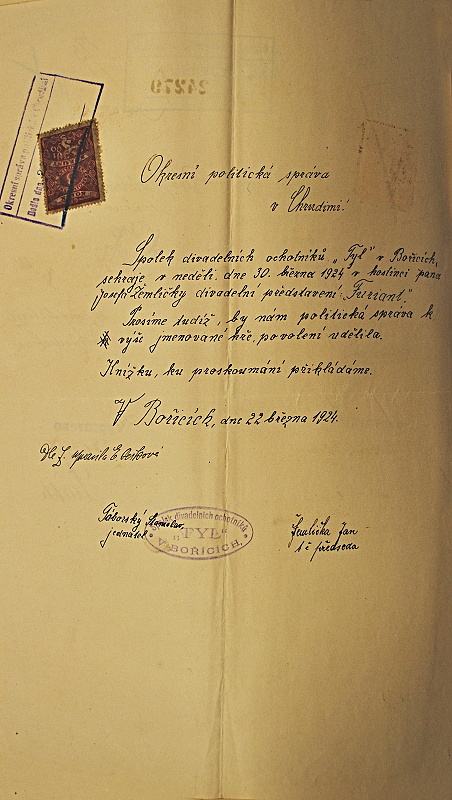 24279
Okresní správa
Došlo dne
Okresní politická správa
v Chrudimi!
Spolek divadelních ochotníků „Tyl" v Bořicích,
sehraje v neděli dne 30. března 1924 v hostinci pana
Josefa Žemličky divadelní představení „Furiant."
Prosíme tudíž, by nám politická správa k
výše jmenované hře, povolení udělila.
Knížku, ku proskoumání přikládáme.
V Bořicích, dne 22 března 1924.
Táborský Stanislav,
jednatel
Spolek divadelních ochotníků
„TYL"
V BOŘICÍCH.
Žemlička Jan
t č předseda